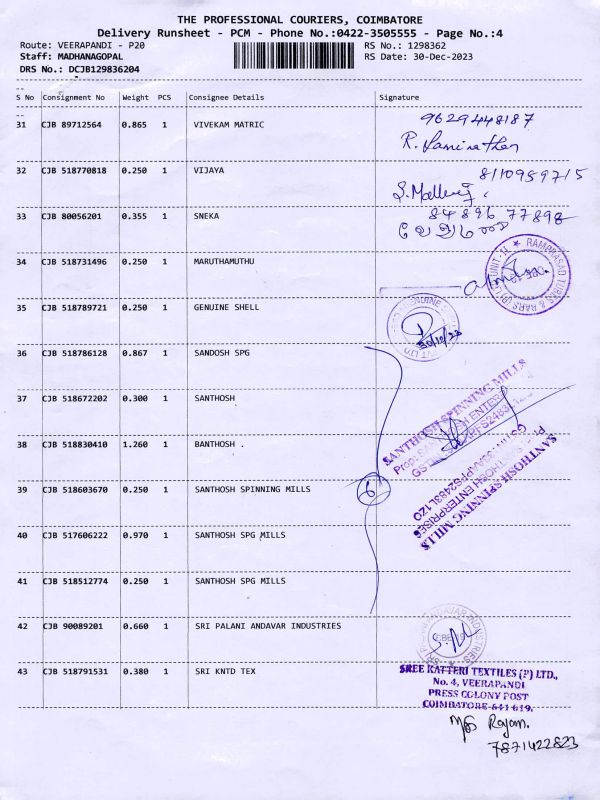 THE PROFESSIONAL COURIERS, COIMBATORE
Delivery Runsheet - PCM - Phone No.:0422-3505555 - Page No.:4
Route: VEERAPANDI - P20
RS No.: 1298362
Staff: MADHANAGOPAL
RS Date: 30-Dec-2023
DRS No.: DCJB129836204
S No Consignment No Weight PCS Consignee Details Signature
31 CJB 89712564 0.865 1 VIVEKAM MATRIC 9629448187
32 CJB 518770818 0.250 1 VIJAYA 8110959715
33 CJB 80056201 0.355 1 SNEKA 84896 77898
34 CJB 518731496 0.250 1 MARUTHAMUTHU
35 CJB 518789721 0.250 1 GENUINE SHELL
30/12/23
36 CJB 518786128 0.867 1 SANDOSH SPG
37 CJB 518672202 0.300 1 SANTHOSH
SANTHOSH SPINNING MILLS
38 CJB 518830410 1.260 1 BANTHOSH .
39 CJB 518603670 0.250 1 SANTHOSH SPINNING MILLS 6
SANTHOSH SPINNING MILLS
40 CJB 517606222 0.970 1 SANTHOSH SPG MILLS
41 CJB 518512774 0.250 1 SANTHOSH SPG MILLS
42 CJB 90089201 0.660 1 SRI PALANI ANDAVAR INDUSTRIES
43 CJB 518791531 0.380 1 SRI KNTD TEX
SREE KATTERI TEXTILES (P) LTD.,
No. 4, VEERAPANDI
PRESS COLONY POST
COIMBATORE-641 619.
Rajam.
7871422823